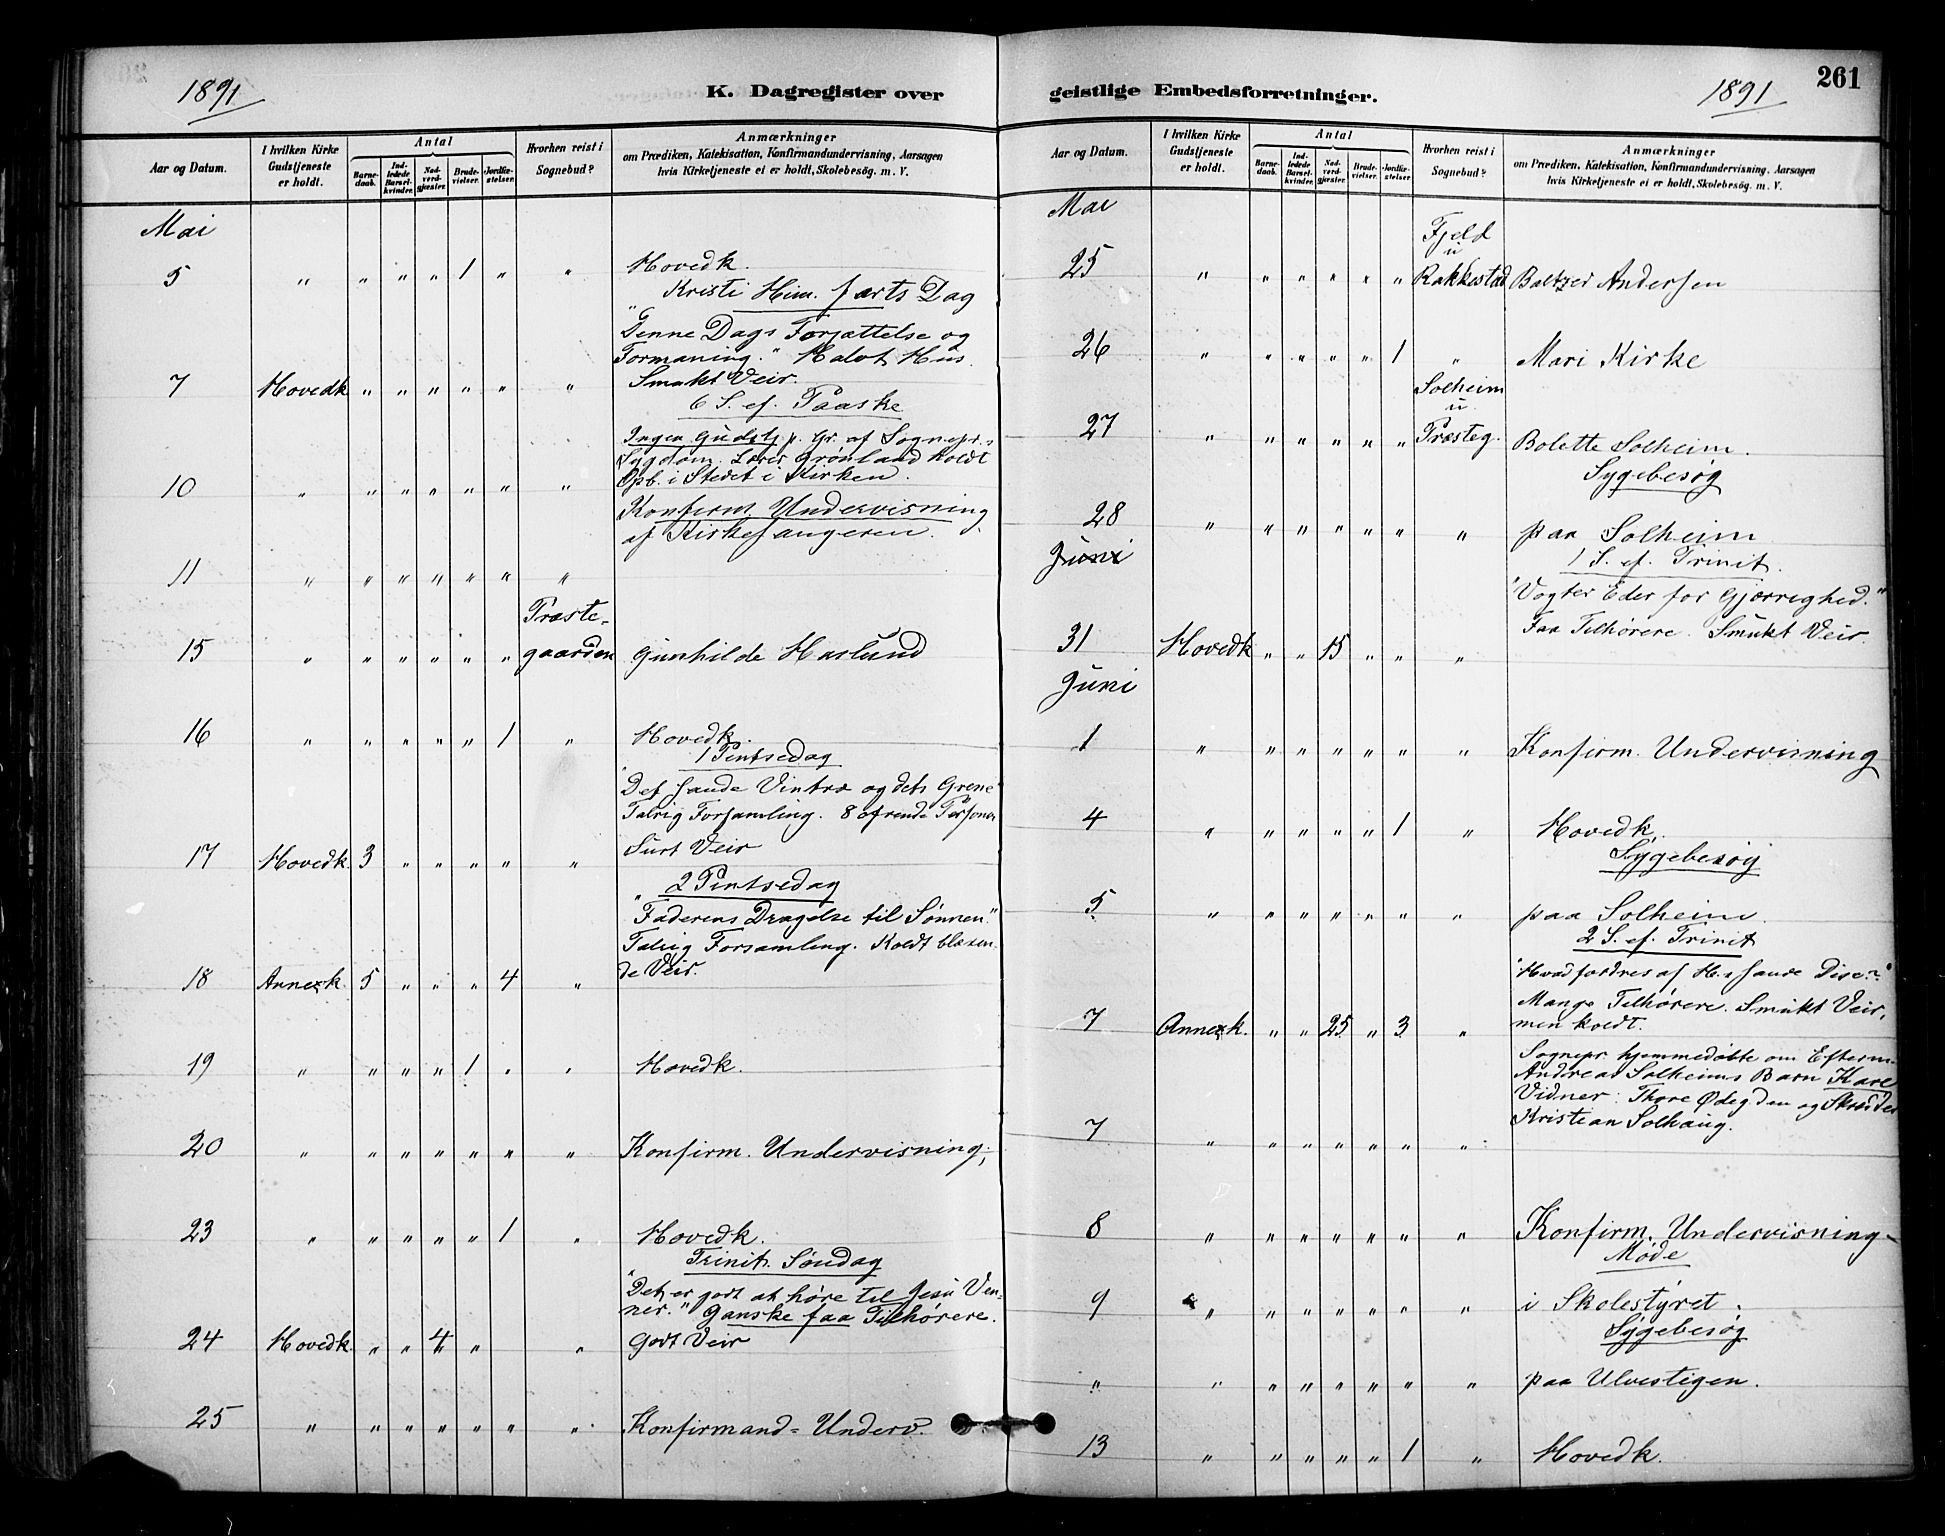 1891
K. Dagregister over
Aar og Datum.
I hvilken Kirke Gudstjeneste er holdt.
Antal
Barnedaab.
Indledede Barselkvinder.
Nadverdgjæster.
Brudevielser.
Jordfæstelser.
Hvorhen reist i Sognebud?
Anmærkninger
om Prædiken, Katekisation, Konfirmandundervisning, Aarsagen
hvis Kirketjeneste ei er holdt, Skolebesög. m. V.
Mai
5 " " " " 1 " " Hovedk.
Kristi Him. farts Dag
"Denne Dags Forjættelse og
Formaning." Halvt Hus.
7 Hovedk " " " " " " Smukt Veir.
6 S. ef. Paaske
Ingen Gudstj. p. Gr. af Sognepr.s
Sygdom. Lærer Grønland holdt
10 " " " " " " " Opb. i Stedet i Kirken.
Konfirm. Undervisning
af Kirkesangeren.
11 " " " " " " "
Præste-
15 " " " " " " gaarden Gunhilde Haslund
16 " " " " " 1 " Hovedk.
1 Pintsedag
"Det sande Vintræ og dets Grene"
Talrig Forsamling. 8 ofrende Personer
17 Hovedk. 3 " " " " " Surt Veir
2 Pintsedag
"Faderens Dragelse til Sønnen."
Talrig Forsamling. Koldt blæsen-
18 Annexk. 5 " " " 4 " de Veir.
19 " " " " 1 " " Hovedk.
20 " " " " " " " Konfirm. Undervisning.
23 " " " " " 1 " Hovedk.
Trinit. Søndag
"Det er godt at høre til Jesu Ven-
ner." Ganske faa Tilhørere.
24 Hovedk. " " 4 " " Godt Veir
25 " " " " " " " Konfirmand-Underv.
geistlige Embedsforretninger.
1891
261
Aar og Datum.
I hvilken Kirke Gudstjeneste er holdt.
Antal
Barnedaab.
Indledede Barselkvinder.
Nadverdgjæster.
Brudevielser.
Jordfæstelser.
Hvorhen reist i Sognebud?
Anmærkninger
om Prædiken, Katekisation, Konfirmandundervisning, Aarsagen
hvis Kirketjeneste ei er holdt, Skolebesög. m. V.
Mai
Fjeld
u
25 " " " " " " Rakkestad Baltzer Andersen
26 " " " " " 1 " Mari Kirke
Solheim
u.
27 " " " " " " Præsteg. Bolette Solheim.
Sygebesøg
28 " " " " " " " paa Solheim
Juni
1 S. ef. Trinit.
"Vogter Eder for Gjerrighed."
Faa Tilhørere. Smukt Veir.
31 Hovedk " " 15 " " "
Juni
1 " " " " " " " Konfirm. Undervisning
4 " " " " " 1 " Hovedk.
Sygebesøg
5 " " " " " " " paa Solheim.
2 S. ef. Trinit
"Hvad fordres af H.s sande Disc.?"
Mange Tilhørere. Smukt Veir,
7 Annexk. " " 25 " 3 " men koldt.
Sognepr. hjemmedøbte om Efterm.
Andreas Solheims Barn Kare
Vidner: Thore Ødegden og Skrædder
7 " " " " " " " Kristian Solhaug.
8 " " " " " " " Konfirm. Undervisning
Møde
9 " " " " " " " i Skolestyret.
Sygebesøg
" " " " " " " " paa Ulvestigen.
13 " " " " " 1 " Hovedk.